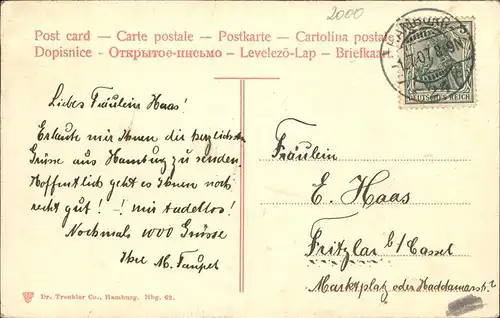 2000
Post card — Carte postale — Postkarte — Cartolina postale
Dopisnice - Открытое-письмо — Levelezö-Lap — Briefkaart.
HAMBURG
7.07.8-9N
DEUTSCHES REICH
Liebes Fräulein Haas!
Erlaube mir Ihnen die herzlichsten
Grüsse aus Hamburg zu senden.
Hoffentlich geht es Ihnen noch
recht gut! -! mir tadellos!
Nochmals 1000 Grüsse
Ihr M. Taupel
Fräulein
E. Haas
Fritzlar b/Cassel
Marktplatz oder Haddamarstr. ?
Dr. Trenkler Co., Hamburg. Hbg. 62.